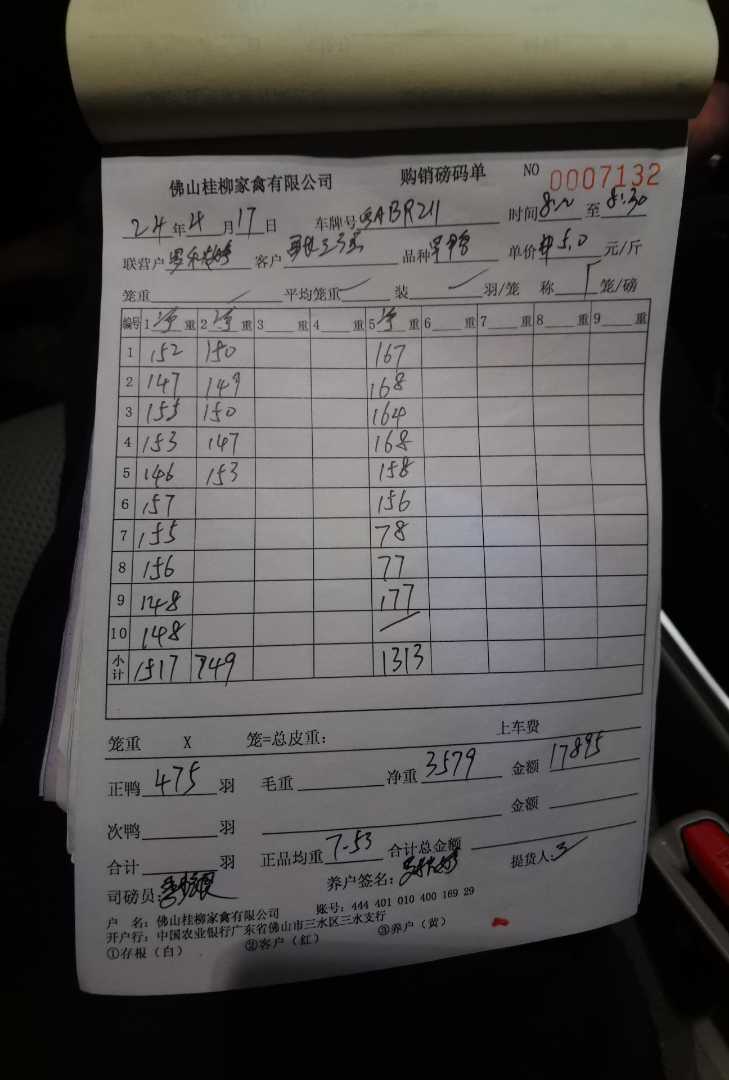 佛山桂柳家禽有限公司 购销磅码单 NO 0007132
24年4月17日 车牌号粤ABR211 时间8:20至8:30
联营户 客户 品种 单价¥5.0元/斤
笼重 平均笼重 装 羽/笼 称 笼/磅
编号 1净重 2净重 3重 4重 5净重 6重 7重 8重 9重
1 152 150 167
2 147 149 168
3 155 150 164
4 153 147 168
5 146 153 158
6 157 156
7 155 78
8 156 77
9 148 177
10 148
小计 1517 749 1313
笼重 X 笼=总皮重： 上车费
正鸭475羽 毛重 净重3579 金额17895
次鸭 羽 金额
合计 羽 正品均重7.53 合计总金额
司磅员： 养户签名： 提货人：
户 名：佛山桂柳家禽有限公司 账号：444 401 010 400 169 29
开户行：中国农业银行广东省佛山市三水区三水支行
①存根（白） ②客户（红） ③养户（黄）